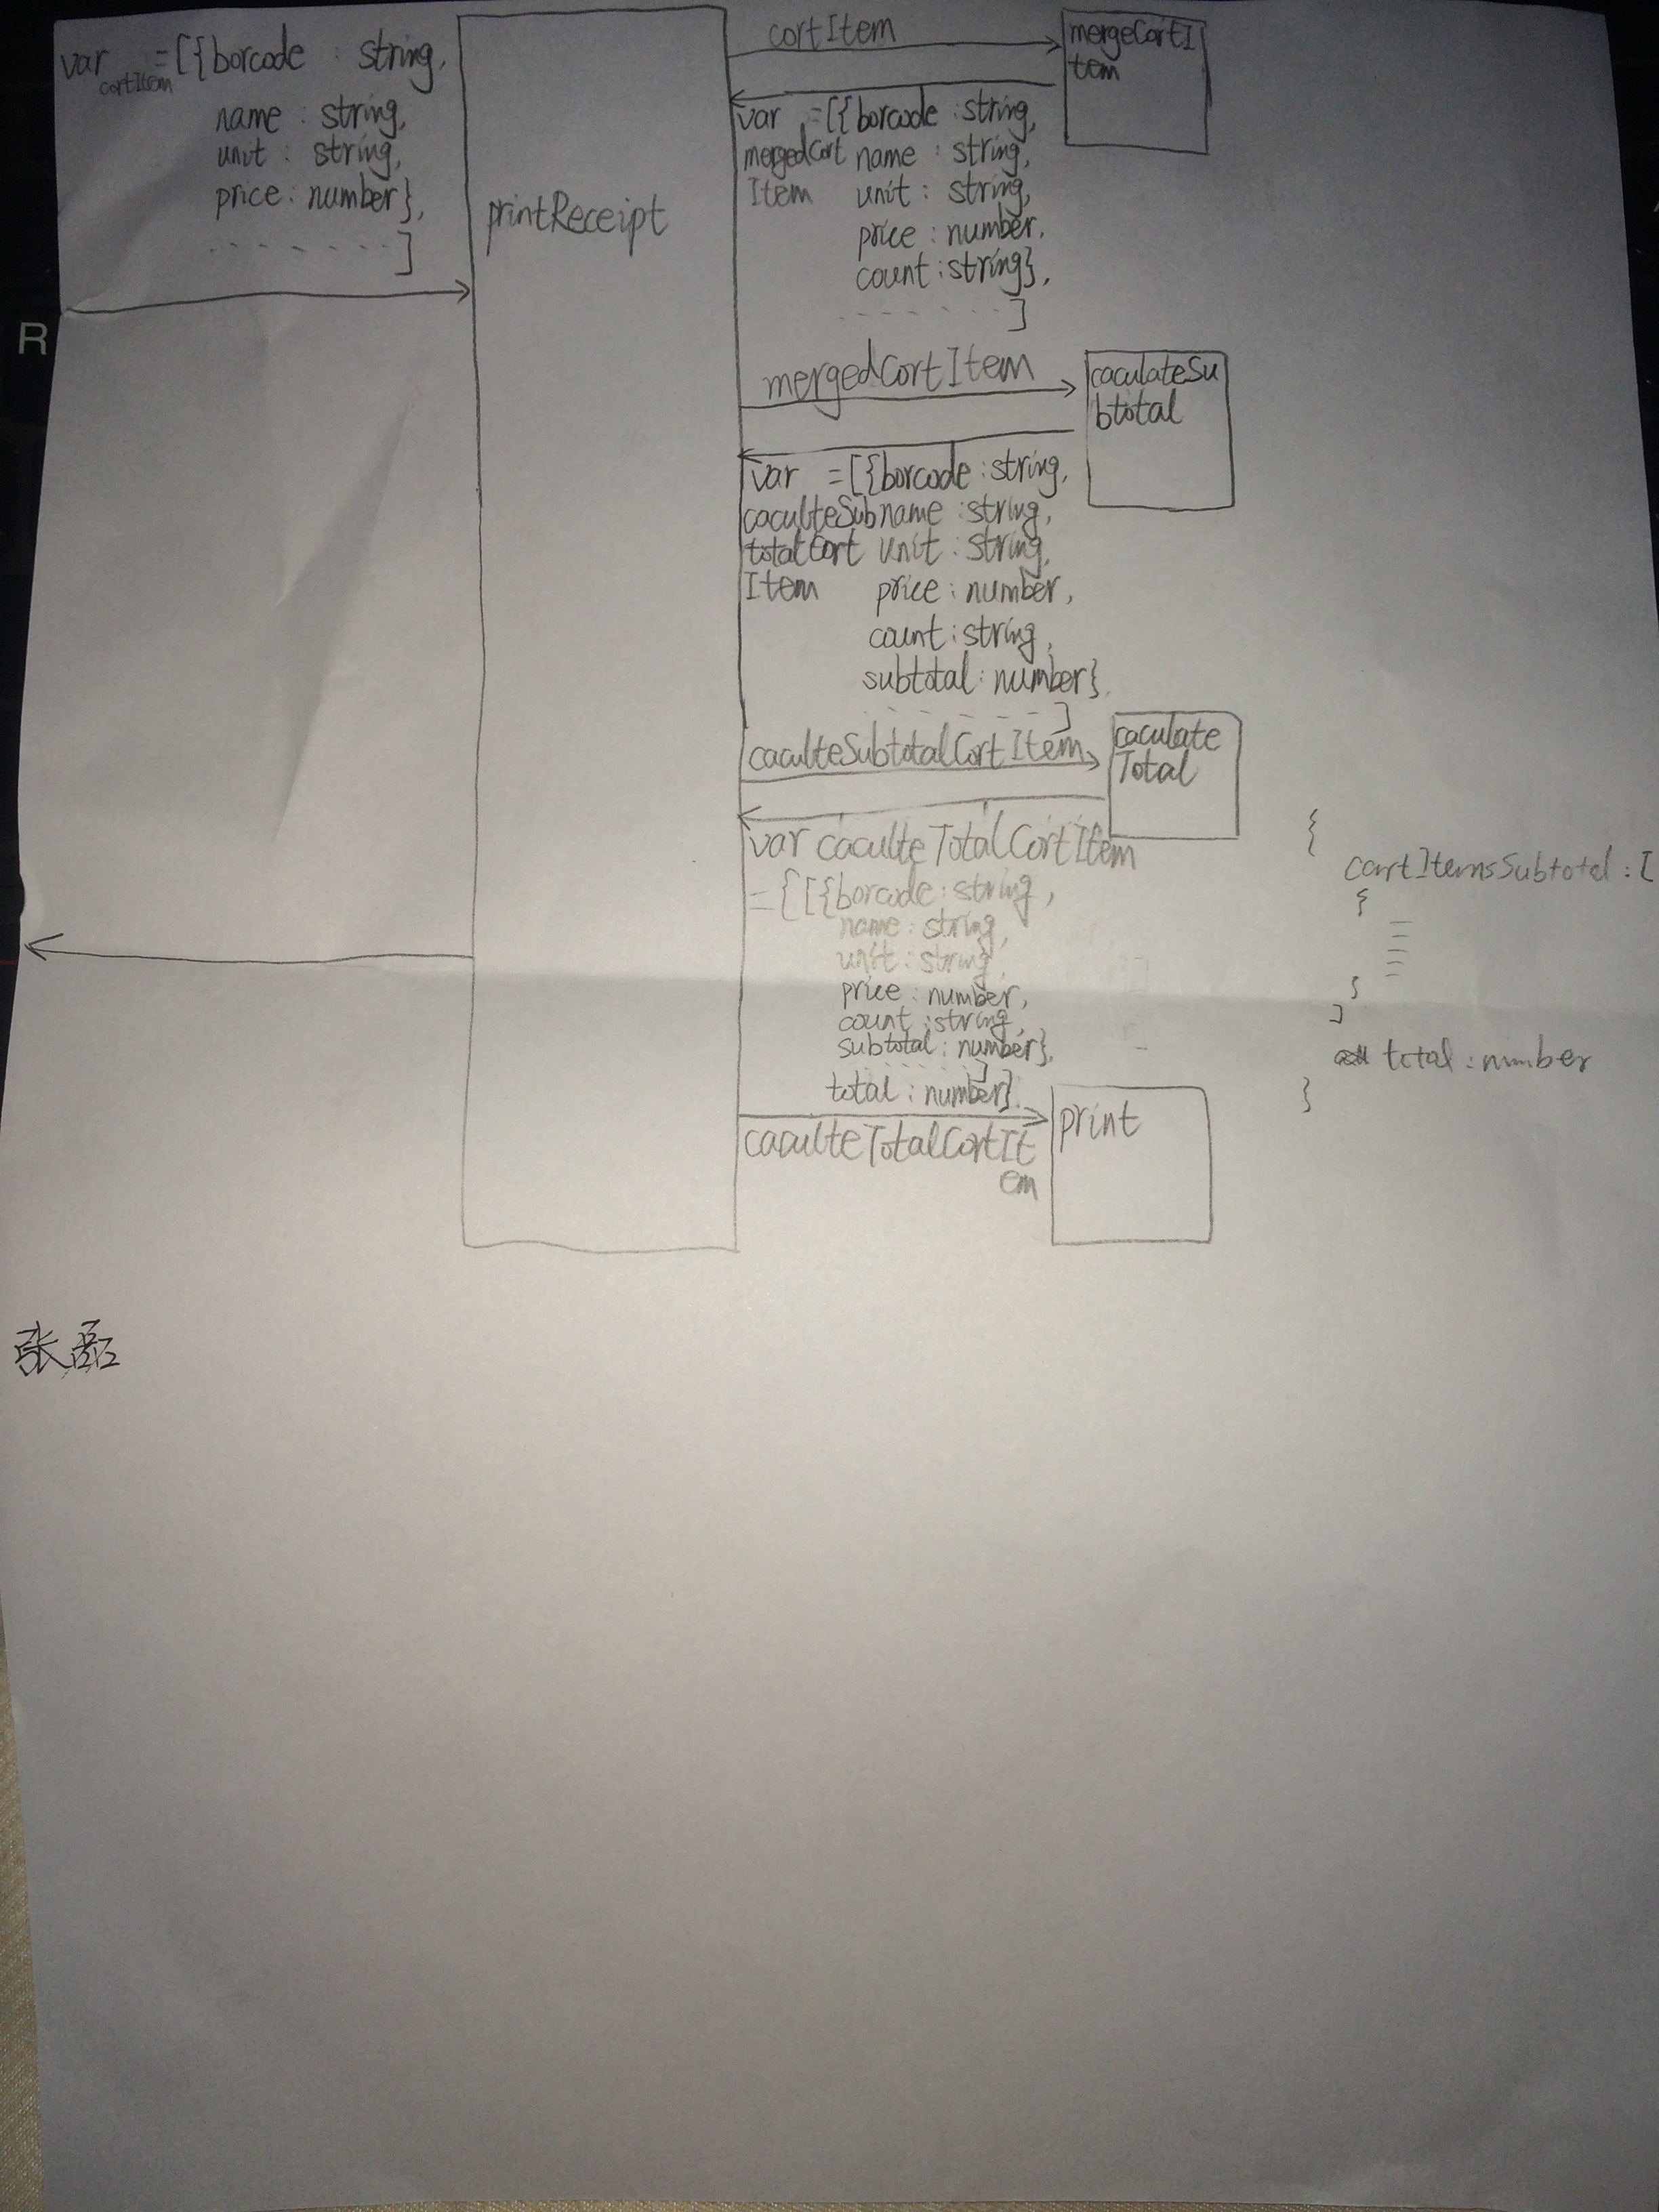 var cortItem =[{borcode : string,
name : string,
unit : string,
price : number},
. . . . . . . . ]
R
printReceipt
cortItem
mergeCortI
tem
var =[{borcode : string,
mergedCort name : string,
Item unit : string,
price : number,
count : string},
. . . . . . . . ]
mergedCortItem
caculateSu
btotal
var =[{borcode : string,
caculteSub name : string,
totalCort unit : string,
Item price : number,
count : string,
subtotal : number}
. . . . . . . . ]
caculteSubtotalCortItem
caculate
Total
var caculteTotalCortItem
={[{borcode : string,
name : string,
unit : string,
price : number,
count : string,
subtotal : number},
. . . . . . . . ]
total : number}
caculteTotalCortIt
em
print
{
cartItemsSubtotal : [
{
}
]
total : number
}
张磊